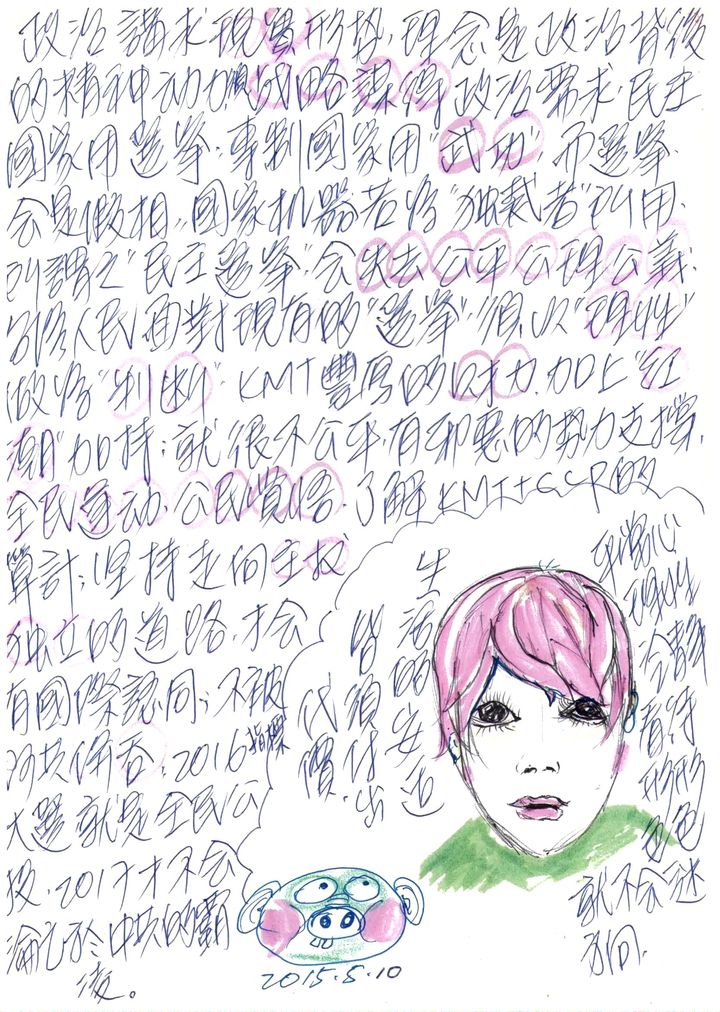 政治講求現實形勢,理念是政治背後
的精神动力,戰略謀得政治需求,民主
國家用選举,專制國家用"武功",而選举
会是假相,國家机器若為"独裁者"叫用,
叫謂之"民主選举"会失去公平公理公義,
人民面對現有的"選举"須以"理性"
做為"判断",KMT豐厚的財力,加上"紅
潮"加持,就很不公平,有邪惡的勢力支撐,
全民運动,公民覺悟,了解KMT+CCP的
算計,坚持走向主权
独立的道路,才会
有國際認同,不被
併吞,2016指標
大選就是全民公
投,2017才不会
淪於中共的霸
後。
平常心
理性
冷靜
看待
形形
色色
就不会迷
方向.
生活的安逸
皆須付出
代價.
2015.5.10